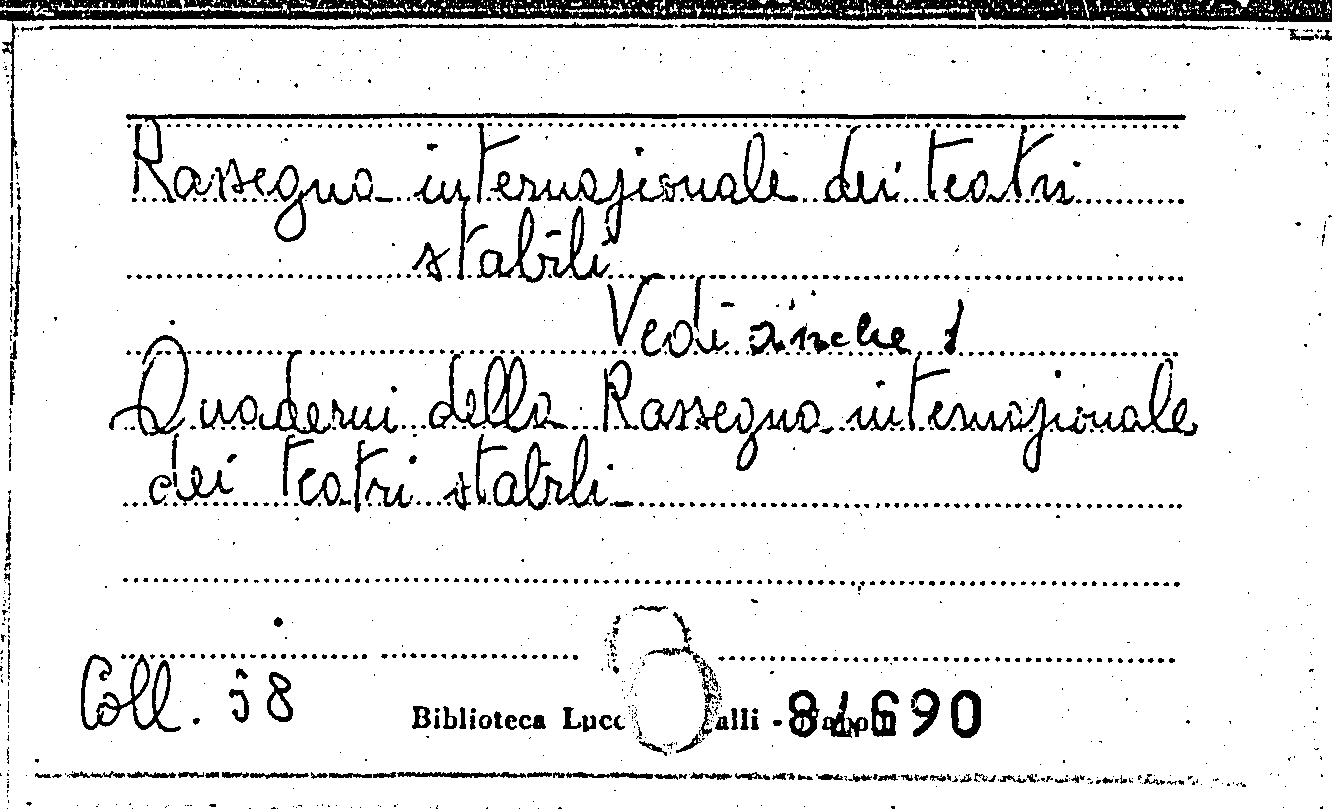 Rassegna internazionale dei teatri
stabili
Vedi anche
Quaderni della Rassegna internazionale
dei teatri stabili
Coll. 58
Biblioteca Lucc alli - Napoli